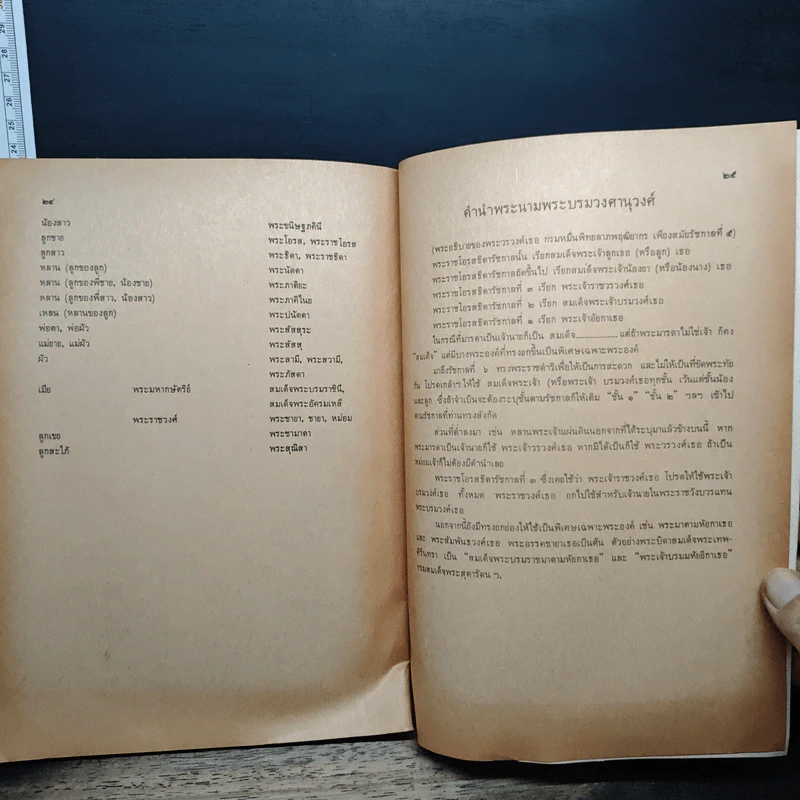 ๒๔
น้องสาว พระขนิษฐภคินี
ลูกชาย พระโอรส, พระราชโอรส
ลูกสาว พระธิดา, พระราชธิดา
หลาน (ลูกของลูก) พระนัดดา
หลาน (ลูกของพี่ชาย, น้องชาย) พระภาติยะ
หลาน (ลูกของพี่สาว, น้องสาว) พระภาคิไนย
เหลน (หลานของลูก) พระปนัดดา
พ่อตา, พ่อผัว พระสัสสุระ
แม่ยาย, แม่ผัว พระสัสสุ
ผัว พระสามี, พระสวามี,
พระภัสดา
เมีย พระมหากษัตริย์ สมเด็จพระบรมราชินี,
สมเด็จพระอัครมเหสี
พระราชวงศ์ พระชายา, ชายา, หม่อม
ลูกเขย พระชามาดา
ลูกสะไภ้ พระสุณิสา
๒๕
คำนำพระนามพระบรมวงศานุวงศ์
(พระอธิบายของพระวรวงศ์เธอ กรมหมื่นพิทยลาภพฤฒิยากร เพียงสมัยรัชกาลที่ ๕)
พระราชโอรสธิดารัชกาลนั้น เรียกสมเด็จพระเจ้าลูกเธอ (หรือลูก) เธอ
พระราชโอรสธิดารัชกาลถัดขึ้นไป เรียกสมเด็จพระเจ้าน้องยา (หรือน้องนาง) เธอ
พระราชโอรสธิดารัชกาลที่ ๓ เรียก พระเจ้าราชวรวงศ์เธอ
พระราชโอรสธิดารัชกาลที่ ๒ เรียก สมเด็จพระเจ้าบรมวงศ์เธอ
พระราชโอรสธิดารัชกาลที่ ๑ เรียก พระเจ้าอัยกาเธอ
ในกรณีที่มารดาเป็นเจ้านายก็เป็น สมเด็จ....................แต่ถ้าพระมารดาไม่ใช่เจ้า ก็คง
"สมเด็จ" แต่มีบางพระองค์ที่ทรงยกขึ้นเป็นพิเศษเฉพาะพระองค์
มาถึงรัชกาลที่ ๖ ทรงพระราชดำริเพื่อให้เป็นการสะดวก และไม่ให้เป็นที่ขัดพระทัย
กัน โปรดเกล้าฯ ให้ใช้ สมเด็จพระเจ้า (หรือพระเจ้า) บรมวงศ์เธอทุกชั้น เว้นแต่ชั้นน้อง
และลูก ซึ่งถ้าจำเป็นจะต้องระบุชั้นตามรัชกาลก็ให้เติม "ชั้น ๑" "ชั้น ๒" ฯลฯ เข้าไป
ตามรัชกาลที่ท่านทรงสังกัด
ส่วนที่ต่ำลงมา เช่น หลานพระเจ้าแผ่นดินนอกจากที่ได้ระบุมาแล้วข้างบนนี้ หาก
พระมารดาเป็นเจ้านายก็ใช้ พระเจ้าวรวงศ์เธอ หากมิได้เป็นก็ใช้ พระวรวงศ์เธอ ถ้าเป็น
หม่อมเจ้าก็ไม่ต้องมีคำนำเลย
พระราชโอรสธิดารัชกาลที่ ๓ ซึ่งเคยใช้ว่า พระเจ้าราชวงศ์เธอ โปรดให้ใช้พระเจ้า
บรมวงศ์เธอ ทั้งหมด พระราชวงศ์เธอ ยกไปใช้สำหรับเจ้านายในพระราชวังบวรแทน
พระบรมวงศ์เธอ
นอกจากนี้ยังมีทรงยกย่องให้ใช้เป็นพิเศษเฉพาะพระองค์ เช่น พระมาตามหัยกาเธอ
และ พระสัมพันธวงศ์เธอ พระอรรคชายาเธอเป็นต้น ตัวอย่างพระบิดาสมเด็จพระเทพ-
ศิรินทรา เป็น "สมเด็จพระบรมราชมาตามหัยกาเธอ" และ "พระเจ้าบรมมหัยยิกาเธอ"
กรมสมเด็จพระสุดารัตน ฯ.